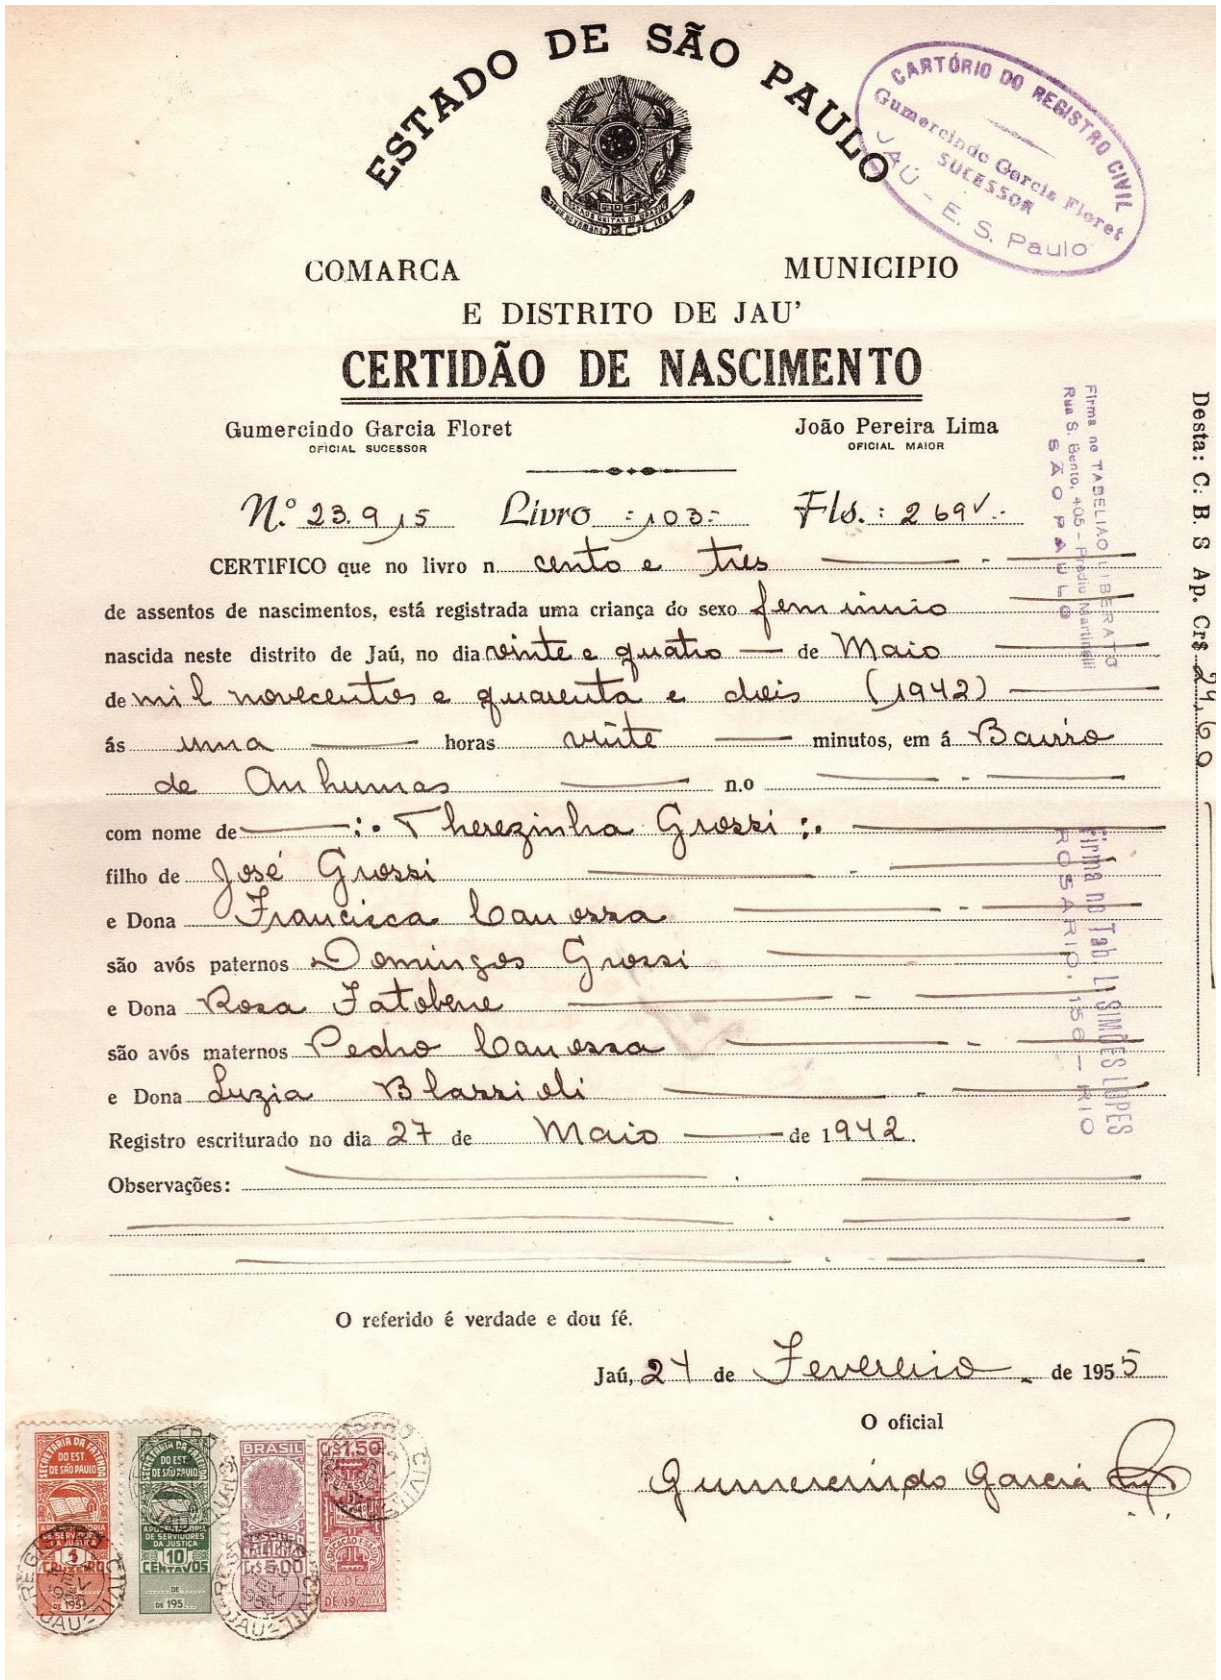 ESTADO DE SÃO PAULO
CARTÓRIO DO REGISTRO CIVIL
Gumercindo Garcia Floret
SUCESSOR
JAÚ - E. S. Paulo
COMARCA MUNICIPIO
E DISTRITO DE JAU'
CERTIDÃO DE NASCIMENTO
Gumercindo Garcia Floret
OFICIAL SUCESSOR
João Pereira Lima
OFICIAL MAIOR
Firma no TABELIÃO LIBERATO
Rua S. Bento, 405 - Prediu Martinelli
SÃO PAULO
Desta: C. B. S Ap. Cr$
N.º 23.915 Livro :103: Fls.: 269v.
CERTIFICO que no livro n. cento e tres
de assentos de nascimentos, está registrada uma criança do sexo feminino
nascida neste distrito de Jaú, no dia vinte e quatro de Maio
de mil novecentos e quarenta e dois (1942)
ás uma horas vinte minutos, em á Bairro
de Anhumas n.o
com nome de :. Therezinha Grossi :.
filho de José Grossi
e Dona Francisca Canossa
são avós paternos Domingos Grossi
e Dona Rosa Fatobene
são avós maternos Pedro Canossa
e Dona Luzia Blassioli
Registro escriturado no dia 27 de Maio de 1942.
Observações:
Firma no Tab L. SIMÕES LOPES
ROSARIO, 156 - RIO
O referido é verdade e dou fé.
Jaú, 24 de Fevereiro de 1955
O oficial
Gumercindo Garcia
SECRETARIA DA FAZENDA
DO EST.
DE SÃO PAULO
APOSENTADORIA
DE SERVIDORES
DA JUSTIÇA
1
CRUZEIRO
DE
DE 195
SECRETARIA DA FAZENDA
DO EST.
DE SÃO PAULO
APOSENTADORIA
DE SERVIDORES
DA JUSTIÇA
10
CENTAVOS
DE
DE 195
BRASIL
NACIONAL
Cr$ 5,00
Cr$1,50
EDUCAÇÃO E SAUDE
DE
DE 19
REGISTRO CIVIL
JAU